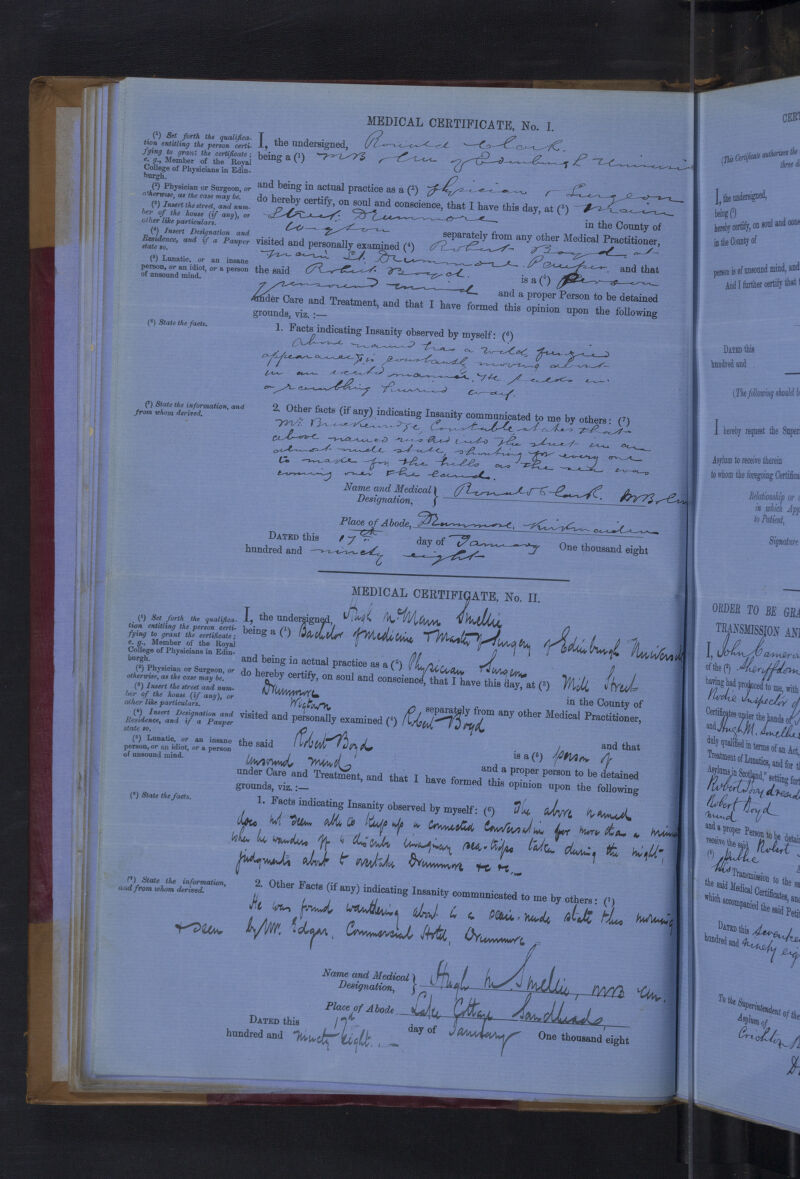 MEDICAL CERTIFICATE, No. I.
(1) Set forth the qualifica-
tion entitling the person certi-
fying to grant the certificate;
e. g., Member of the Royal
College of Physicians in Edin-
burgh.
(2) Physician or Surgeon, or
otherwise, as the case may be.
(3) Insert the street, and num-
ber of the house (if any), or
other like particulars.
(4) Insert Designation and
Residence, and if a Pauper
state so.
(5) Lunatic, or an insane
person, or an idiot, or a person
of unsound mind.
I, the undersigned, Ronald Clark.
being a (1) MB & Cm of Edinburgh University
and being in actual practice as a (2) Physician & Surgeon
do hereby certify, on soul and conscience, that I have this day, at (3) Main
Street, Drummore in the County of
Wigton separately from any other Medical Practitioner,
visited and personally examined (4) Robert Boyd at
Main St. Drummore. Pauper. and that
the said Robert Boyd. is a (5) Person
of unsound mind and a proper Person to be detained
under Care and Treatment, and that I have formed this opinion upon the following
grounds, viz. :—
(6) State the facts.
1. Facts indicating Insanity observed by myself: (6)
Above named has a wild,
appearance, is constantly moving about
in an excited manner. He talks in
a rambling hurried way.
(7) State the information, and
from whom derived.
2. Other facts (if any) indicating Insanity communicated to me by others: (7)
Mr. Constable states that
above named rushed into the street in an
almost nude state, shouting for every one
to make for the hills as the sea was
coming over the land.
Name and Medical Designation, Ronald Clark. MB. Cm
Place of Abode, Drummore, Kirkmaiden
DATED this 17th day of January One thousand eight
hundred and ninety eight
MEDICAL CERTIFICATE, No. II.
(1) Set forth the qualifica-
tion entitling the person certi-
fying to grant the certificate;
e. g., Member of the Royal
College of Physicians in Edin-
burgh.
(2) Physician or Surgeon, or
otherwise, as the case may be.
(3) Insert the street and num-
ber of the house (if any), or
other like particulars.
(4) Insert Designation and
Residence, and if a Pauper
state so.
(5) Lunatic, or an insane
person, or an idiot, or a person
of unsound mind.
I, the undersigned, Hugh Smellie
being a (1) Bachelor of Medicine & Master of Surgery of Edinburgh University
and being in actual practice as a (2) Physician & Surgeon
do hereby certify, on soul and conscience, that I have this day, at (3) Mill Street
Drummore in the County of
Wigtown separately from any other Medical Practitioner,
visited and personally examined (4) Robert Boyd
and that
the said Robert Boyd is a (5) person of
unsound mind and a proper person to be detained
under Care and Treatment, and that I have formed this opinion upon the following
grounds, viz. :—
(6) State the facts.
1. Facts indicating Insanity observed by myself: (6) The above named
does not seem able to keep up a connected conversation for more than a
when he wanders off to describe imaginary sea-trips taken during the night,
judgments about to overtake Drummore &c &c.—
(7) State the information,
and from whom derived.
2. Other Facts (if any) indicating Insanity communicated to me by others: (7)
He was found wandering about in a semi-nude state this morning
& seen by Mr. Edgar, Commercial Hotel, Drummore
Name and Medical Designation, Hugh M. Smellie, MB Cm.
Place of Abode Lake Cottage Sandhead,
DATED this 17th day of January One thousand eight
hundred and ninety eight. —
CERT
(This Certificate authorises the
three d
I, the undersigned,
being (1)
hereby certify, on soul and cons
in the County of
person is of unsound mind, and
And I further certify that t
DATED this
hundred and
(The following should b
I hereby request the Super
Asylum to receive therein
to whom the foregoing Certifica
Relationship or
in which App
to Patient,
Signature
ORDER TO BE GRA
TRANSMISSION AN
I, John Camero
of the (1) Sheriffdom
having had produced to me, with
Inspector of
Certificates under the hands of
and Hugh M. Smellie
duly qualified in terms of an Act,
Treatment of Lunatics, and for t
Asylums in Scotland," setting fort
Robert Boyd
Robert Boyd
mind
and a proper Person to be detai
receive the said Robert
Transmission to the sa
the said Medical Certificates, and
which accompanied the said Peti
DATED this Seventeen
hundred and ninety eig
To the Superintendent of the
Asylum of
Crichton